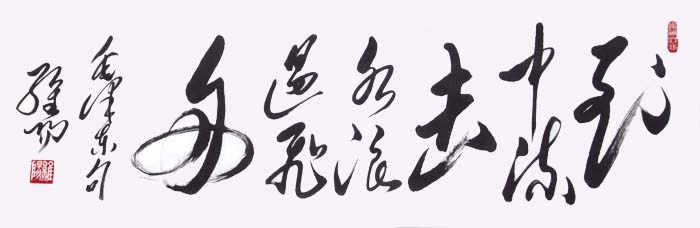 到
中流
击
水浪
遏飞
舟
毛泽东句